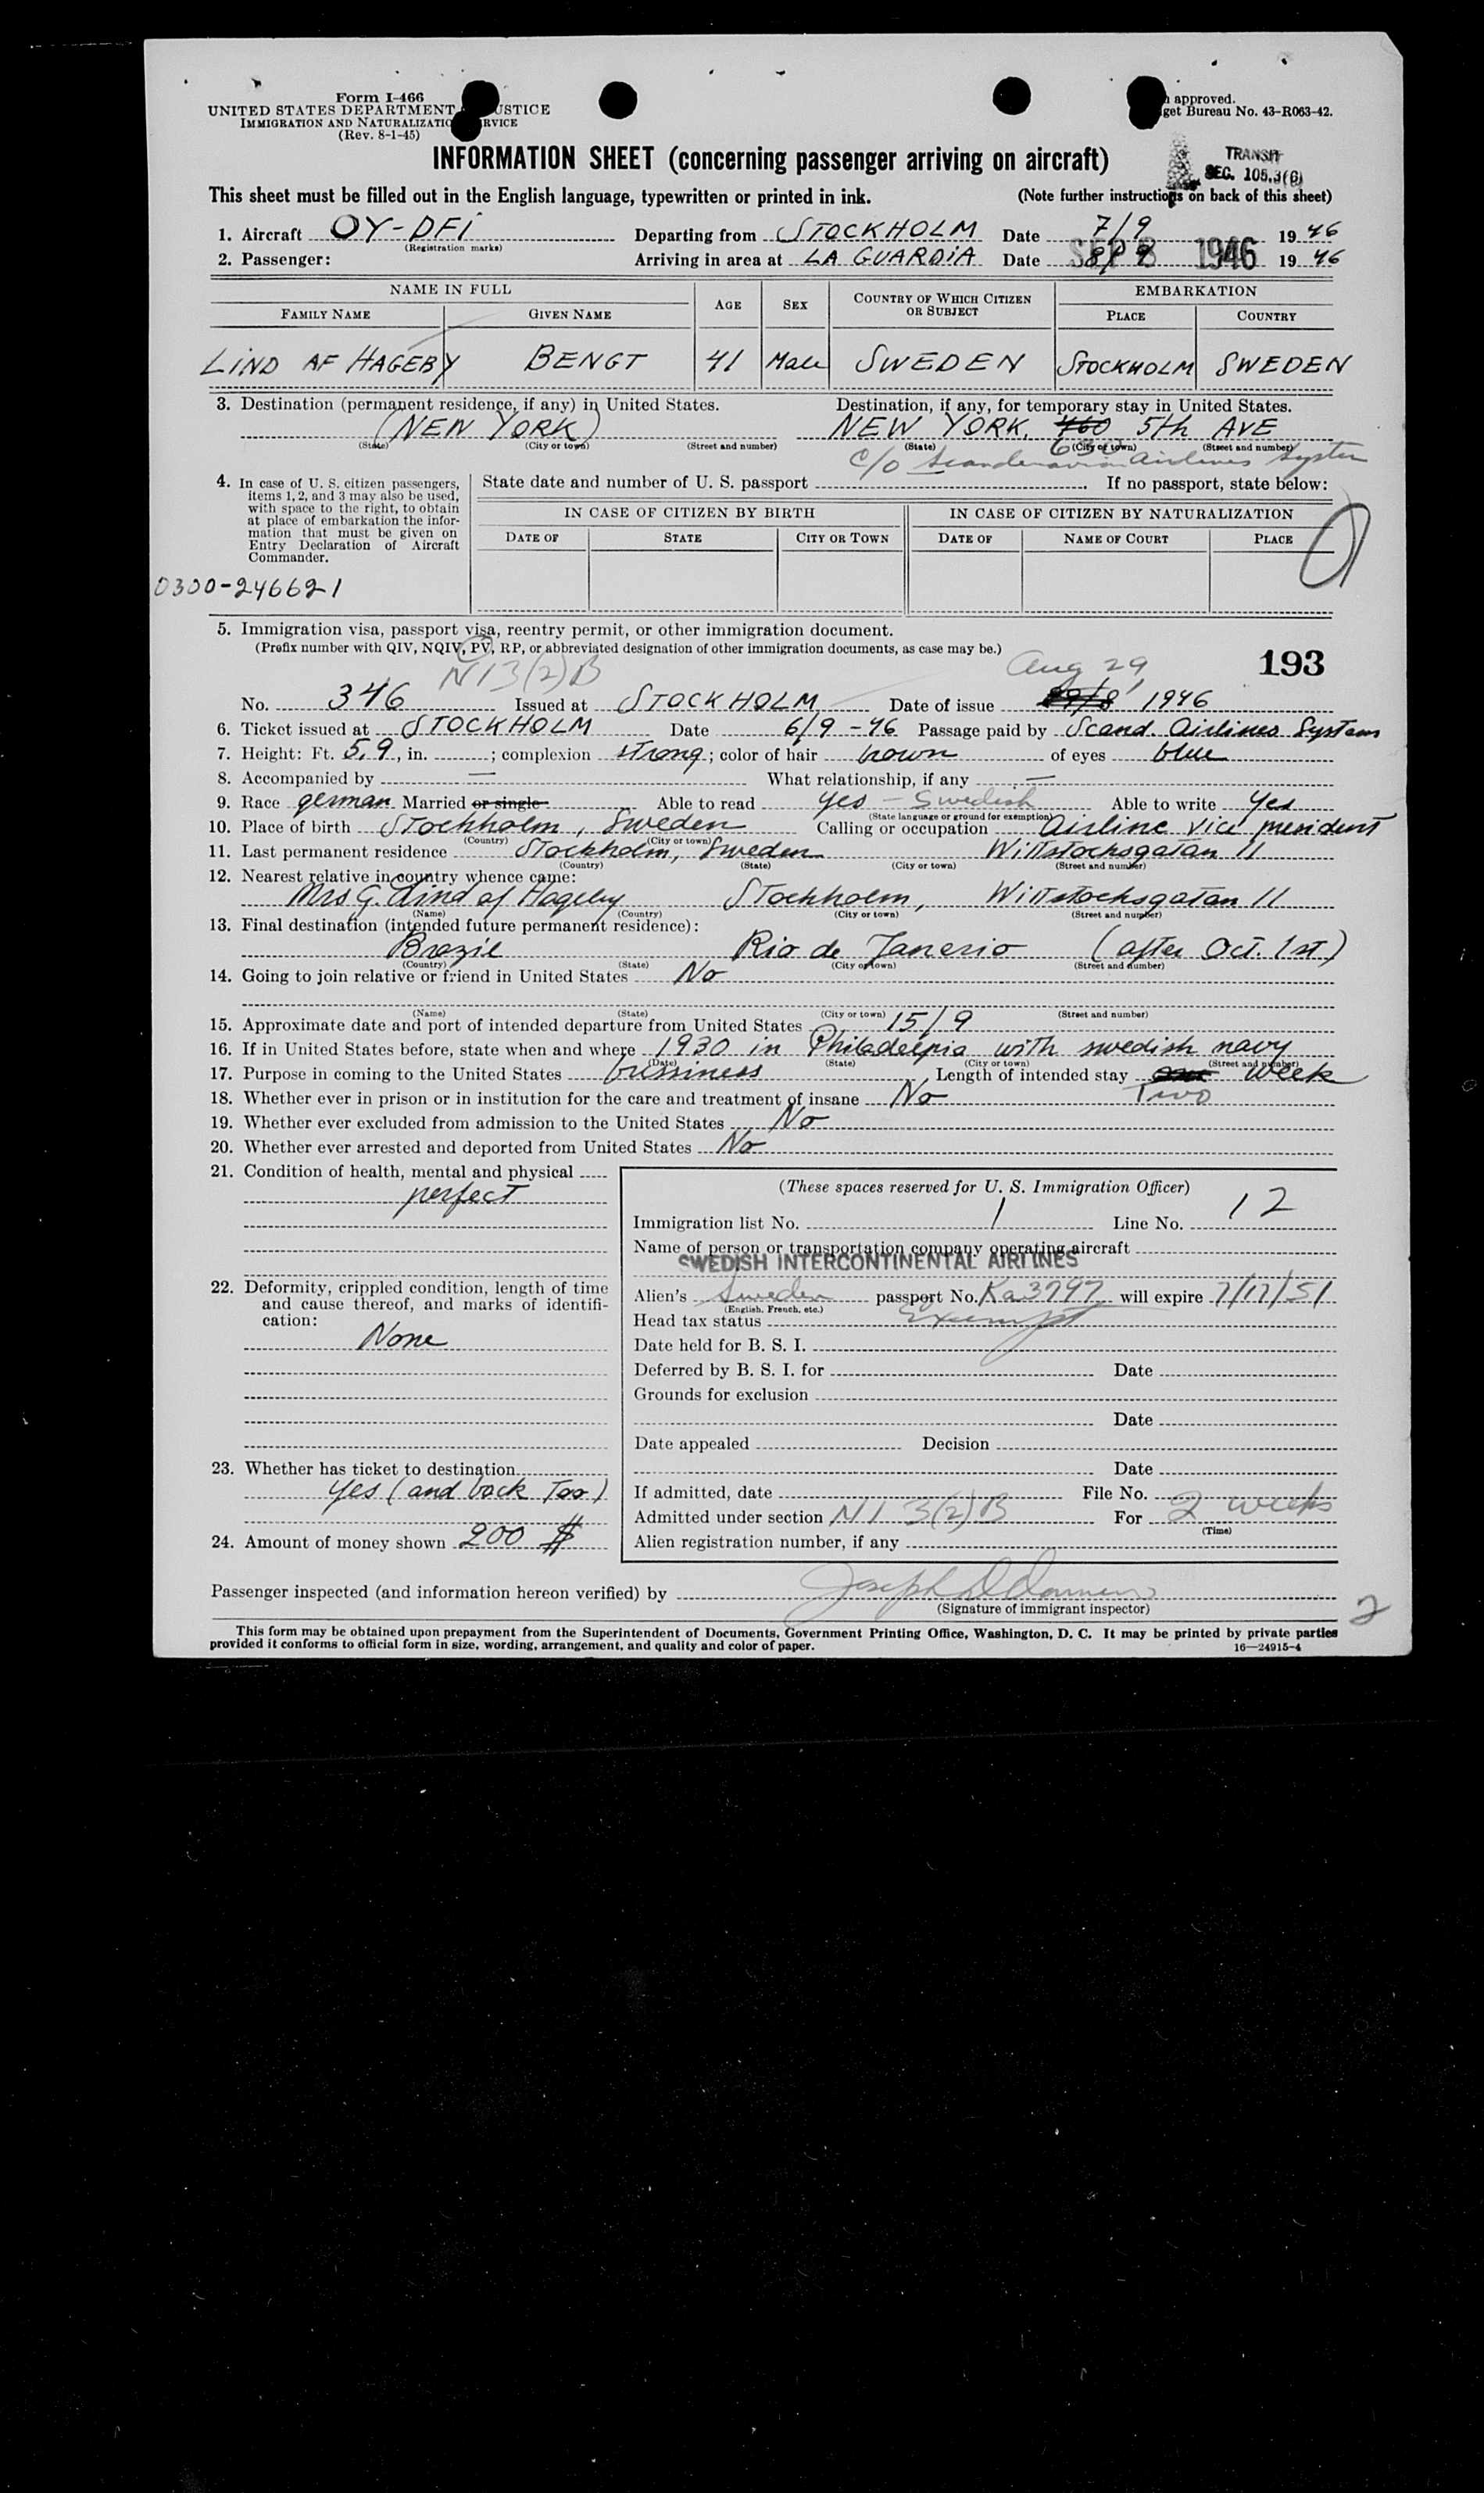 Form I-466
UNITED STATES DEPARTMENT JUSTICE
IMMIGRATION AND NATURALIZATION SERVICE
(Rev. 8-1-45)
approved.
get Bureau No. 43-R063-42.
INFORMATION SHEET (concerning passenger arriving on aircraft)
TRANSIT
SEC. 105.3(B)
This sheet must be filled out in the English language, typewritten or printed in ink. (Note further instructions on back of this sheet)
1. Aircraft OY-DFI Departing from STOCKHOLM Date 7/9 1946
(Registration marks)
2. Passenger: Arriving in area at LA GUARDIA Date 8/9 SEP 8 1946 1946
NAME IN FULL AGE SEX COUNTRY OF WHICH CITIZEN OR SUBJECT EMBARKATION
FAMILY NAME GIVEN NAME PLACE COUNTRY
LIND AF HAGEBY BENGT 41 Male SWEDEN STOCKHOLM SWEDEN
3. Destination (permanent residence, if any) in United States. Destination, if any, for temporary stay in United States.
(NEW YORK) NEW YORK, 760 5th AVE
(State) (City or town) (Street and number) (State) (City or town) (Street and number)
630
c/o Scandenavian Airlines System
4. In case of U. S. citizen passengers, items 1, 2, and 3 may also be used, with space to the right, to obtain at place of embarkation the information that must be given on Entry Declaration of Aircraft Commander.
State date and number of U. S. passport If no passport, state below:
IN CASE OF CITIZEN BY BIRTH IN CASE OF CITIZEN BY NATURALIZATION
DATE OF STATE CITY OR TOWN DATE OF NAME OF COURT PLACE
0300-246621
5. Immigration visa, passport visa, reentry permit, or other immigration document.
(Prefix number with QIV, NQIV, PV, RP, or abbreviated designation of other immigration documents, as case may be.)
193
NI 3(2)B Aug 29,
No. 346 Issued at STOCKHOLM Date of issue 29/8 1946
6. Ticket issued at STOCKHOLM Date 6/9-46 Passage paid by Scand. Airlines System
7. Height: Ft. 5,9, in. ; complexion strong; color of hair brown of eyes blue
8. Accompanied by — What relationship, if any —
9. Race german Married or single Able to read yes - Swedish Able to write Yes
(State language or ground for exemption)
10. Place of birth Stockholm, Sweden Calling or occupation Airline vice president
(Country) (City or town)
11. Last permanent residence Stockholm, Sweden Wittstocksgatan 11
(Country) (State) (City or town) (Street and number)
12. Nearest relative in country whence came:
Mrs G. Lind af Hageby Stockholm, Wittstocksgatan 11
(Name) (Country) (City or town) (Street and number)
13. Final destination (intended future permanent residence):
Brazil Rio de Janerio (after Oct. 1st)
(Country) (State) (City or town) (Street and number)
14. Going to join relative or friend in United States No
(Name) (State) (City or town) (Street and number)
15. Approximate date and port of intended departure from United States 15/9
16. If in United States before, state when and where 1930 in Philadelpia with swedish navy
(Date) (State) (City or town) (Street and number)
17. Purpose in coming to the United States bussiness Length of intended stay one week
Two
18. Whether ever in prison or in institution for the care and treatment of insane No
19. Whether ever excluded from admission to the United States No
20. Whether ever arrested and deported from United States No
21. Condition of health, mental and physical
perfect
22. Deformity, crippled condition, length of time and cause thereof, and marks of identification:
None
23. Whether has ticket to destination
Yes (and back Too)
24. Amount of money shown 200 $
(These spaces reserved for U. S. Immigration Officer)
Immigration list No. 1 Line No. 12
Name of person or transportation company operating aircraft
SWEDISH INTERCONTINENTAL AIRLINES
Alien's Sweden passport No. Ka3797 will expire 7/17/51
(English, French, etc.)
Head tax status Exempt
Date held for B. S. I.
Deferred by B. S. I. for Date
Grounds for exclusion
Date
Date appealed Decision
Date
If admitted, date File No.
Admitted under section NI 3(2)B For 2 weeks
(Time)
Alien registration number, if any
Passenger inspected (and information hereon verified) by
(Signature of immigrant inspector)
2
This form may be obtained upon prepayment from the Superintendent of Documents, Government Printing Office, Washington, D. C. It may be printed by private parties
provided it conforms to official form in size, wording, arrangement, and quality and color of paper. 16—24915-4